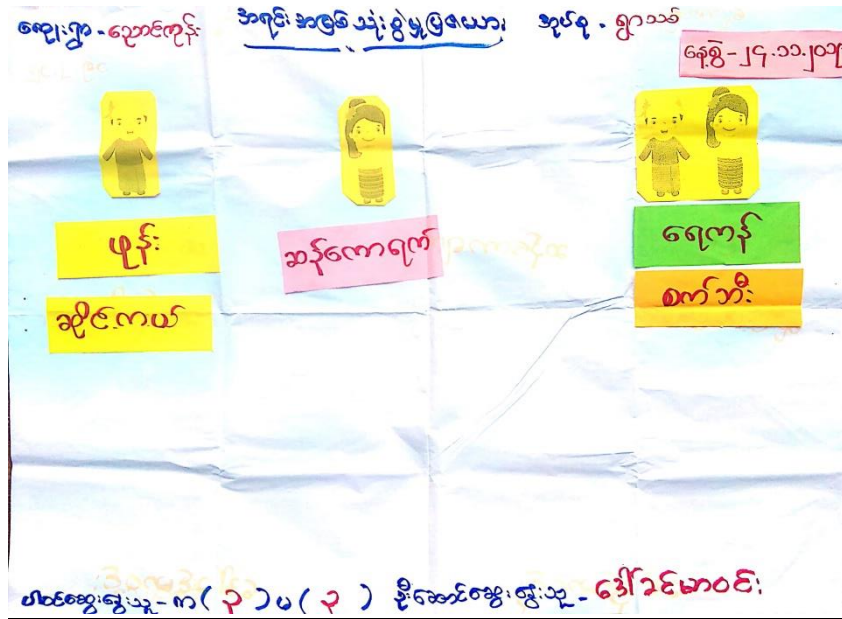 ကျေးရွာ - ညောင်ကုန်း အရင်းအမြစ် သုံးစွဲမှုပြဇယား အုပ်စု - ရွာသစ်
နေ့စွဲ - ၂၄.၁၁.၂၀၁၉
ဖုန်း
ဆန်ကောရက်
ရေကန်
ဆိုင်ကယ်
စက်ဘီး
ပါဝင်ဆွေးနွေးသူ - က ( ၃ ) မ ( ၃ ) ဦးဆောင်ဆွေးနွေးသူ - ဒေါ်ခင်မာဝင်း